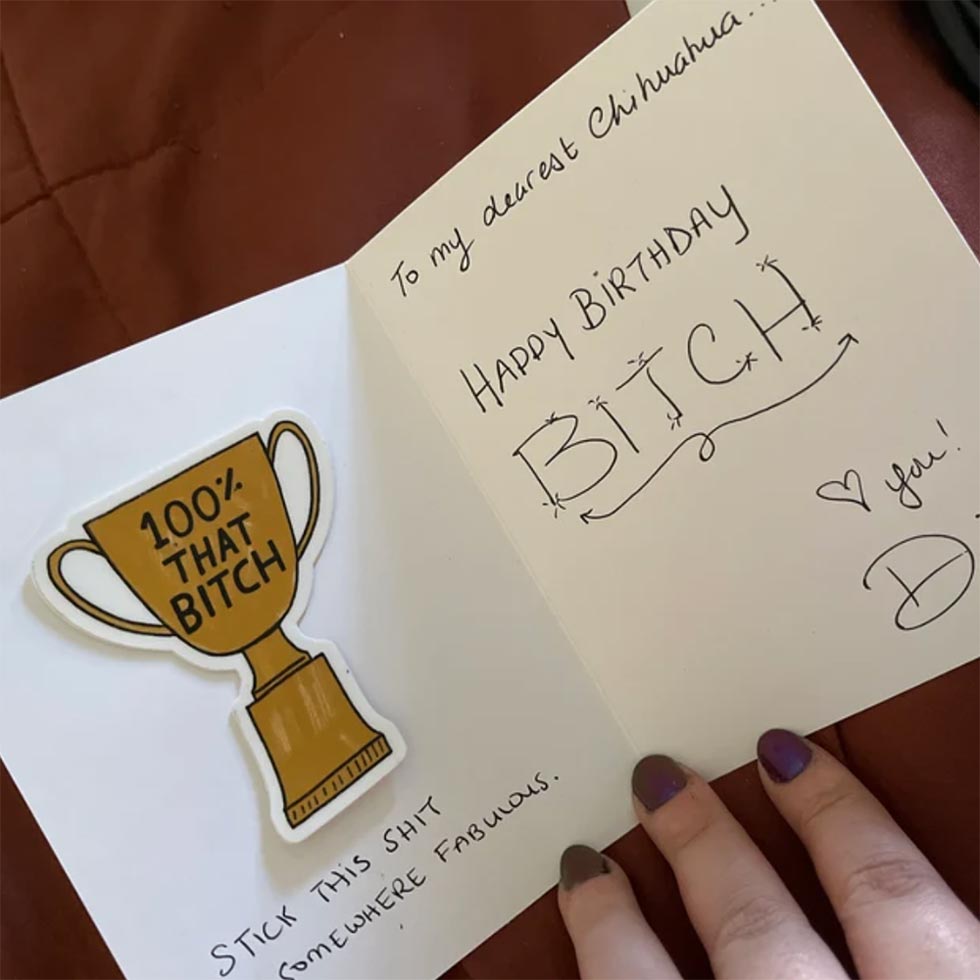 To my dearest Chihuahua...
HAPPY BIRTHDAY
BITCH
♡ you!
D.
100%
THAT
BITCH
STICK THIS SHIT
SOMEWHERE FABULOUS.